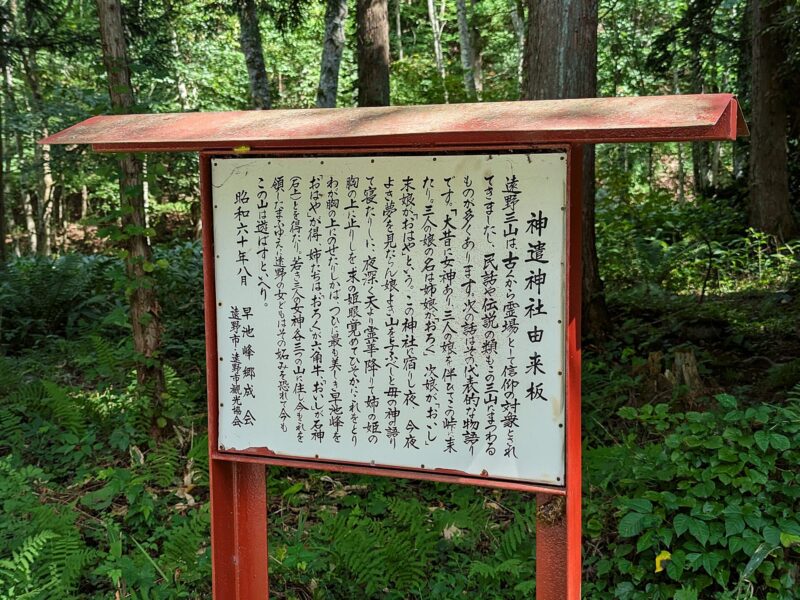 神遣神社由来板
遠野三山は、古くから霊場として信仰の対象とされ
てきました。民話や伝説の類もこの三山にまつわる
ものが多くあります。次の話はその代表的な物語り
です。「大昔に女神あり、三人の娘を伴ひてこの峠に来
たり。三人の娘の名は姉娘がおろく、次娘が、おいし
末娘が「おはや」という。この神社に宿りし夜、今夜
よき夢を見たらん娘によき山を与ふべしと母の神の語り
て寝たりしに、夜深く天より霊華降りて姉の姫の
胸の上に止りしを、末の姫眼覚めてひそかにこれをとり
わが胸の上にのせたりしかば、ついに最も美しき早池峰を
おはやが得、姉たちはおろくが六角牛、おいしが石神
(石上)を得たり。若き三人の女神各三つの山に住し今もこれを
領したまふゆえに遠野の女どもはその妬みを恐れて今も
この山は遊ばずといへり。
昭和六十年八月
早池峰郷成会
遠野市・遠野市観光協会